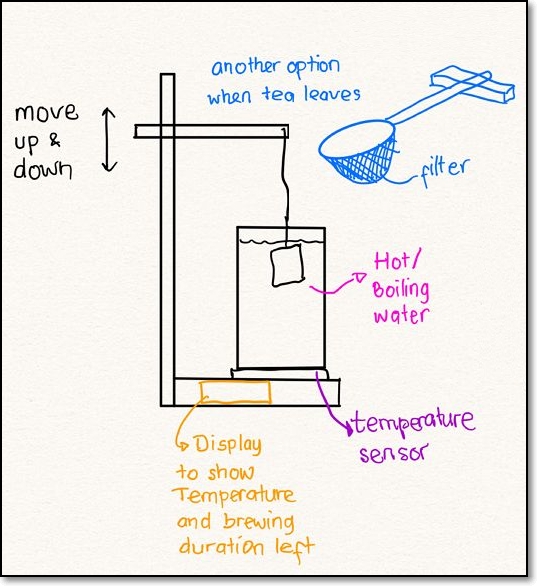 another option
when tea leaves
move
up &
down
filter
Hot/
Boiling
water
temperature
sensor
Display
to show
Temperature
and brewing
duration left